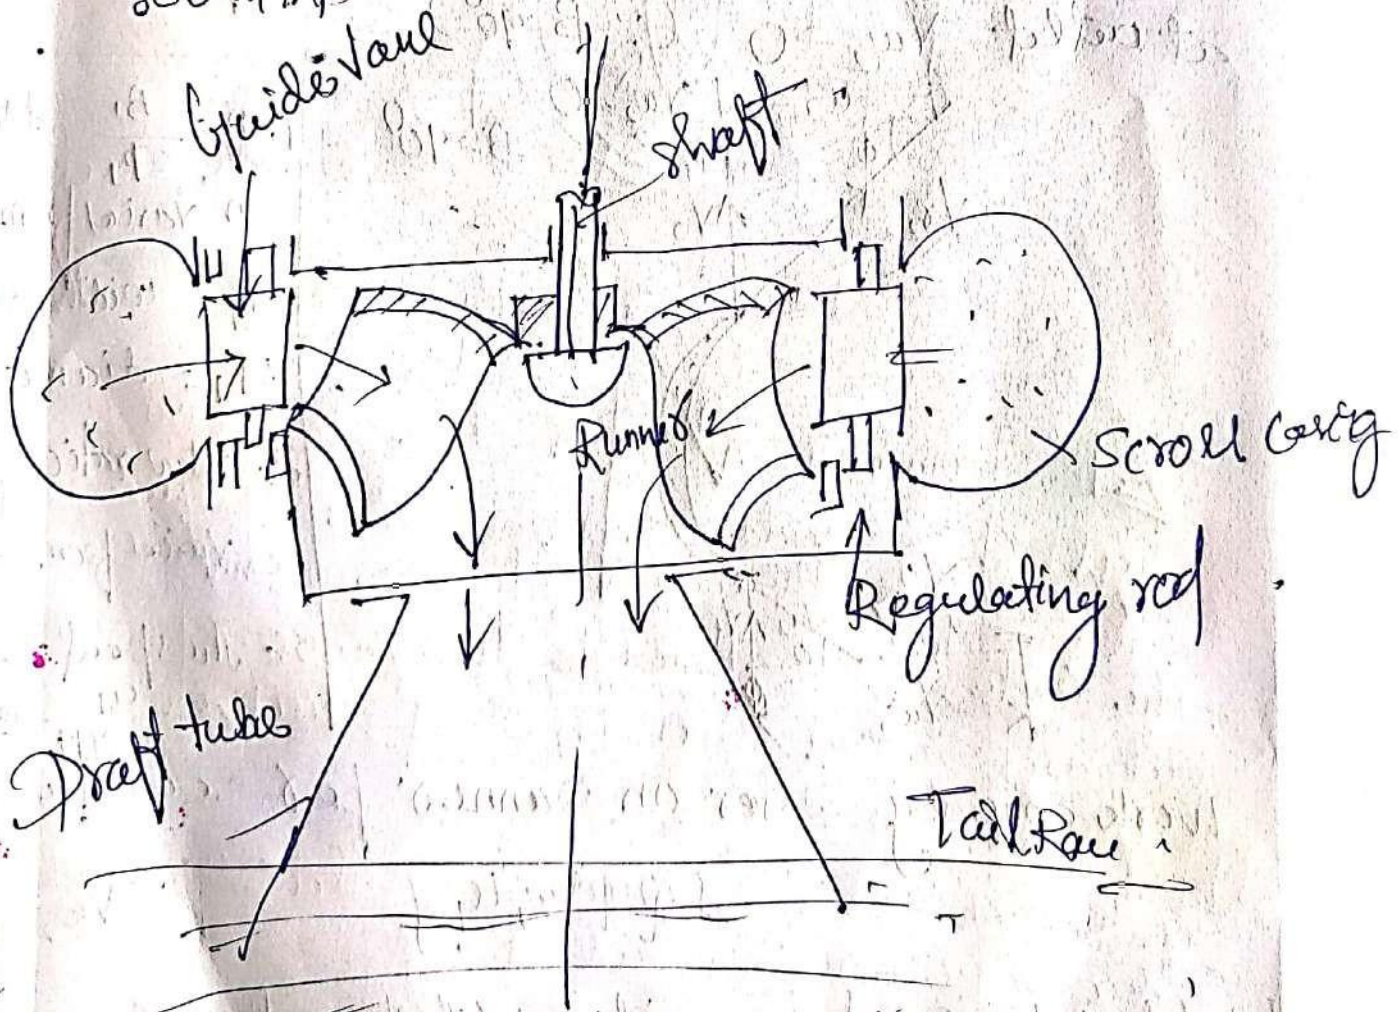 Guide Vane
shaft
Runner
Scroll Casig
Regulating rod
Draft tube
Tail Race